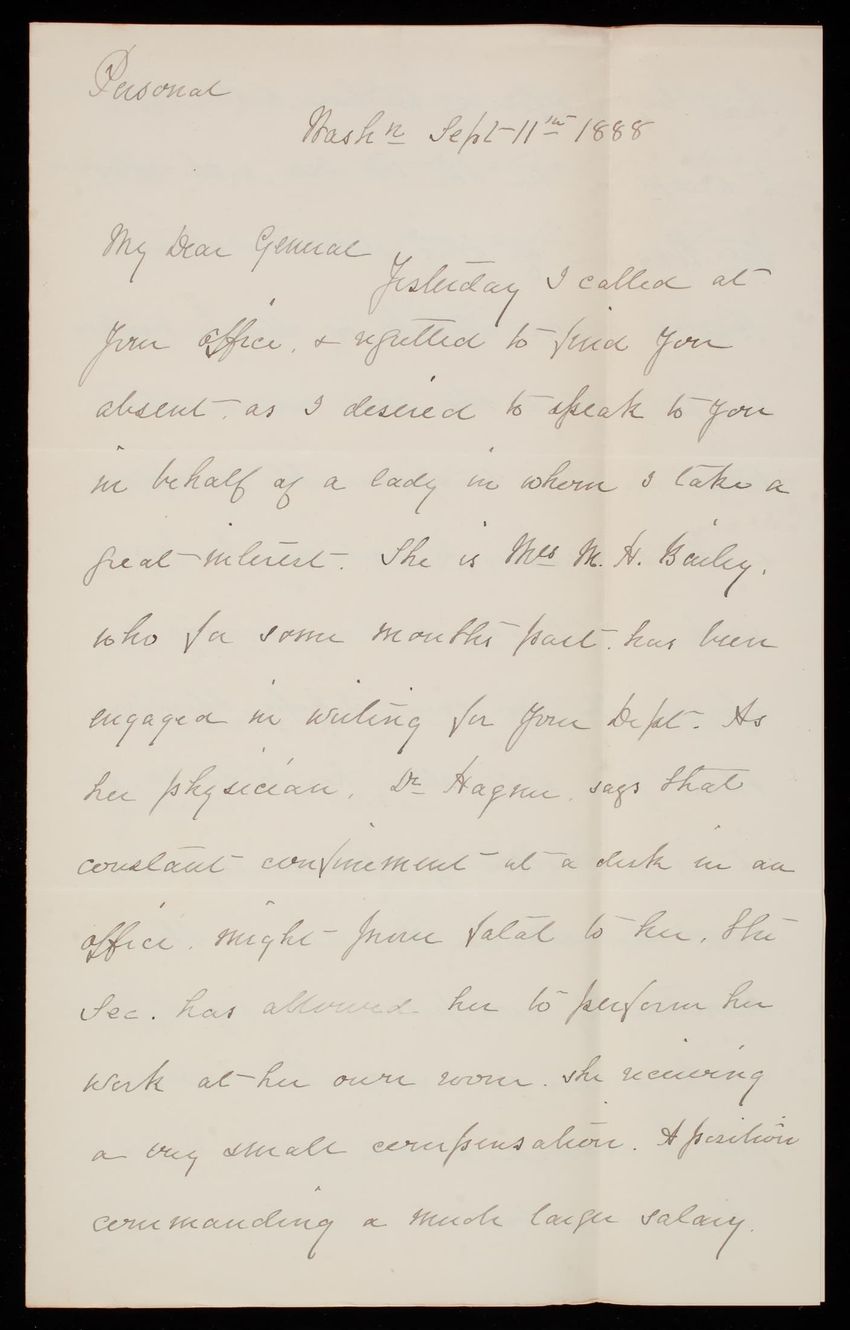 Personal
Washn Sept 11th 1888
My Dear General
Yesterday I called at
your office, & regretted to find you
absent, as I desired to speak to you
in behalf of a lady in whom I take a
great interest. She is Mrs M. H. Bailey,
who for some months past, has been
engaged in writing for your Dept. As
her physician, Dr Hagner, says that
constant confinement at a desk in an
office, might prove fatal to her, the
Sec. has allowed her to perform her
work at her own room, she receiving
a very small compensation. A position
commanding a much larger salary,